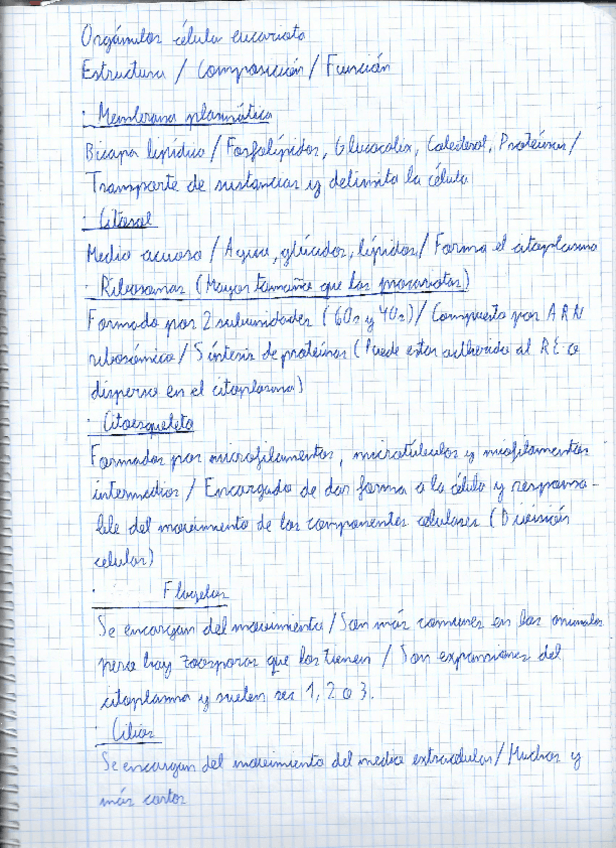 Orgánulos célula eucariota
Estructura / Composición / Función
· Membrana plasmática
Bicapa lipídica / Fosfolípidos, Glucocalix, Colesterol, Proteínas /
Transporte de sustancias y delimita la célula
· Citosol
Medio acuoso / Agua, glúcidos, lípidos / Forma el citoplasma
· Ribosomas (Mayor tamaño que las procariotas)
Formado por 2 subunidades (60s y 40s) / Compuesto por ARN
ribosómico / Síntesis de proteínas (Puede estar adherido al RE o
disperso en el citoplasma)
· Citoesqueleto
Formados por microfilamentos, microtúbulos y miofilamentos
intermedios / Encargado de dar forma a la célula y responsa-
ble del movimiento de los componentes celulares (División
celular)
· Flagelos
Se encargan del movimiento / Son más comunes en los animales
pero hay zoosporas que los tienen / Son expansiones del
citoplasma y suelen ser 1, 2 o 3.
· Cilios
Se encargan del movimiento del medio extracelular / Muchos y
más cortos